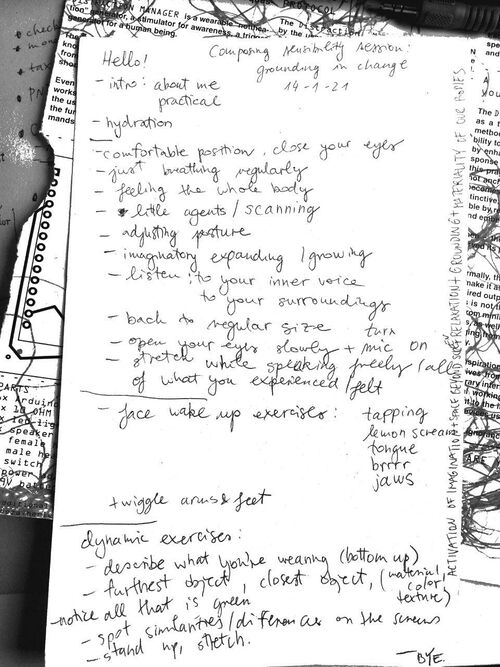 Hello!
Composing sensibility session:
grounding in change
14-1-21
- intro: about me
practical
- hydration
- comfortable position, close your eyes
- just breathing regularly
- feeling the whole body
- little agents / scanning
- adjusting posture
- imaginatory expanding / growing
- listen: to your inner voice
to your surroundings
- back to regular size
- open your eyes slowly + turn mic on
- stretch while speaking freely / all
of what you experienced / felt
- face wake up exercises: tapping
lemon scream
tongue
brrrr
jaws
+ wiggle arms & feet
dynamic exercises:
- describe what you're wearing (bottom up)
- furthest object, closest object, (material, color, texture)
- notice all that is green
- spot similarities/differences on the screens
- stand up, stretch.
- BYE.
ACTIVATION OF IMAGINATION + SPACE BEYOND + RELAXATION + GROUNDING + MATERIALITY OF OUR BODIES
MANAGER is a wearable
generator for a human being.
a stimulator for awareness, a
PROTOCOL
Even
works
the us
the fu
mands
PARTS
Arduino
OHM
led lig
speaker
female
male he
switch
power
9V batte